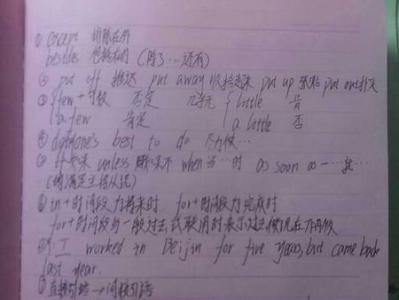 ① except 扣除在外
besides 包括在内 (除了…还有)
② put off 推迟 put away 收拾起来 put up 张贴 put out 扑灭
③ {few+可数 否定 几乎无 {little 肯
{a few 肯定 a little 否
④ do one's best to do 尽力做…
⑤ if 如果 unless 除非 when 当…时 as soon as 一…就…
⑥ in+时间段 为将来时. for+时间段为完成时
for+时间段与一般过去式联用时表示过去 现在不再做
I worked in Beijin for five years, but came back
last year.
⑦ 直接引语→间接引语